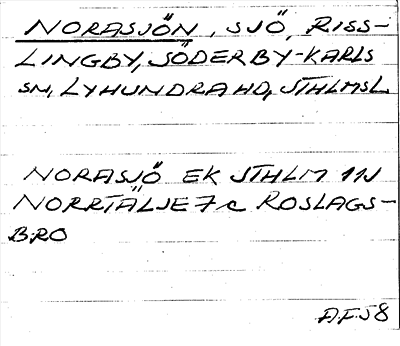 NORASJÖN, SJÖ, RISS-
LINGBY, SÖDERBY-KARLS
SN, LYHUNDRA HD, STHLMSL
NORASJÖ EK STHLM 11J
NORRTÄLJE 7c ROSLAGS-
BRO
A.F.58